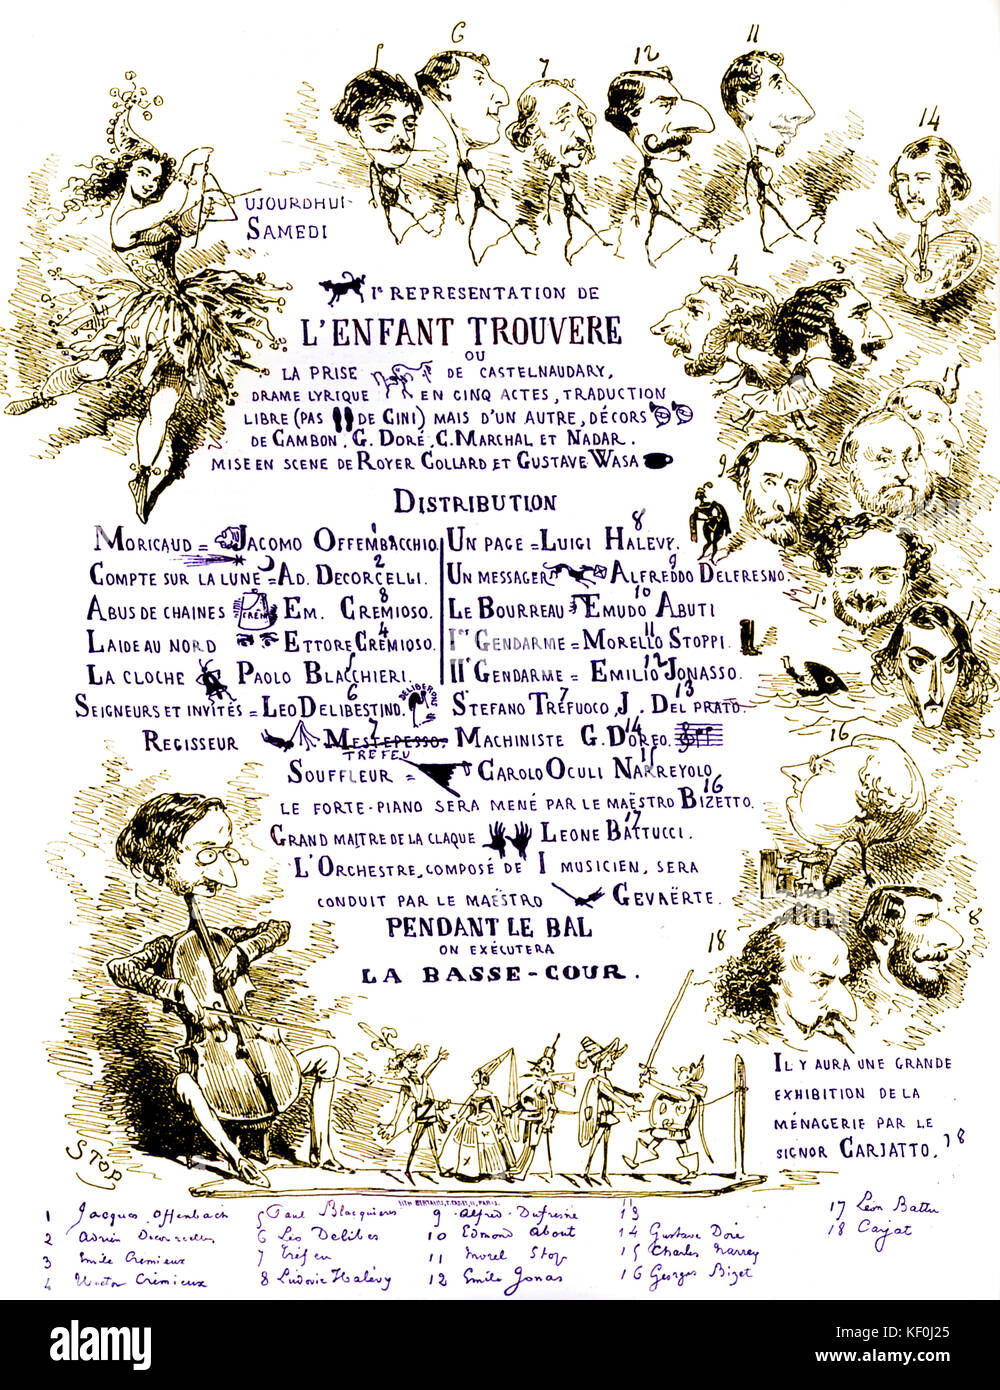 5 6 7 12 11
14
UJOURDHUI
SAMEDI
4 3
1e REPRESENTATION DE
L'ENFANT TROUVERE
OU
LA PRISE DE CASTELNAUDARY,
DRAME LYRIQUE EN CINQ ACTES, TRADUCTION
LIBRE (PAS DE CINI) MAIS D'UN AUTRE, DÉCORS
DE CAMBON, G. DORÉ, C. MARCHAL ET NADAR.
MISE EN SCENE DE ROYER COLLARD ET GUSTAVE WASA
9
DISTRIBUTION
MORICAUD = JACOMO OFFEMBACCHIO 1
COMPTE SUR LA LUNE = AD. DECORCELLI. 2
ABUS DE CHAINES EM. CREMIOSO. 8
LAIDE AU NORD ETTORE CRÉMIOSO. 4
LA CLOCHE PAOLO BLACCHIERI. 5
UN PAGE = LUIGI HALEVY. 8
UN MESSAGER ALFREDDO DELFRESNO. 9
LE BOURREAU EMUDO ABUTI 10
Ier GENDARME = MORELLO STOPPI. 11
IIe GENDARME = EMILIO JONASSO. 12
10
17
SEIGNEURS ET INVITÉS = LEO DELIBESTINO. 6 STEFANO TREFUOCO 7, J. DEL PRATO. 13
REGISSEUR MESTEPESSO. 7 MACHINISTE G. DOREO. 14
TREFEU
SOUFFLEUR = CAROLO OCULI NARREYOLO 15
16
LE FORTE-PIANO SERA MENÉ PAR LE MAËSTRO BIZETTO. 16
GRAND MAITRE DE LA CLAQUE LEONE BATTUCCI. 17
L'ORCHESTRE, COMPOSÉ DE 1 MUSICIEN, SERA
CONDUIT PAR LE MAËSTRO GEVAËRTE.
PENDANT LE BAL
ON EXÉCUTERA
LA BASSE-COUR.
18 8
IL Y AURA UNE GRANDE
EXHIBITION DE LA
MÉNAGERIE PAR LE
SIGNOR CARJATTO. 18
STOP
1 Jacques Offenbach
2 Adrien Decourcelles
3 Emile Crémieux
4 Hector Crémieux
5 Paul Blacquières
6 Léo Delibes
7 Tréfeu
8 Ludovic Halévy
9 Alfred Dufresne
10 Edmond About
11 Morel Stop
12 Emile Jonas
13
14 Gustave Doré
15 Charles Narrey
16 Georges Bizet
17 Léon Battu
18 Carjat
alamy stock photo
alamy
Image ID: KF0J25
www.alamy.com